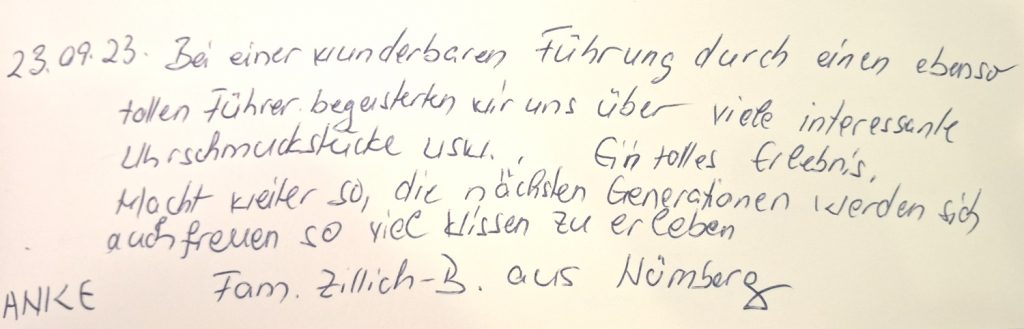 23.09.23. Bei einer wunderbaren Führung durch einen ebenso
tollen Führer begeisterten wir uns über viele interessante
Uhrschmuckstücke usw., Ein tolles Erlebnis,
Macht weiter so, die nächsten Generationen werden sich
auch freuen so viel Wissen zu erleben
ANKE Fam. Zillich-B. aus Nürnberg